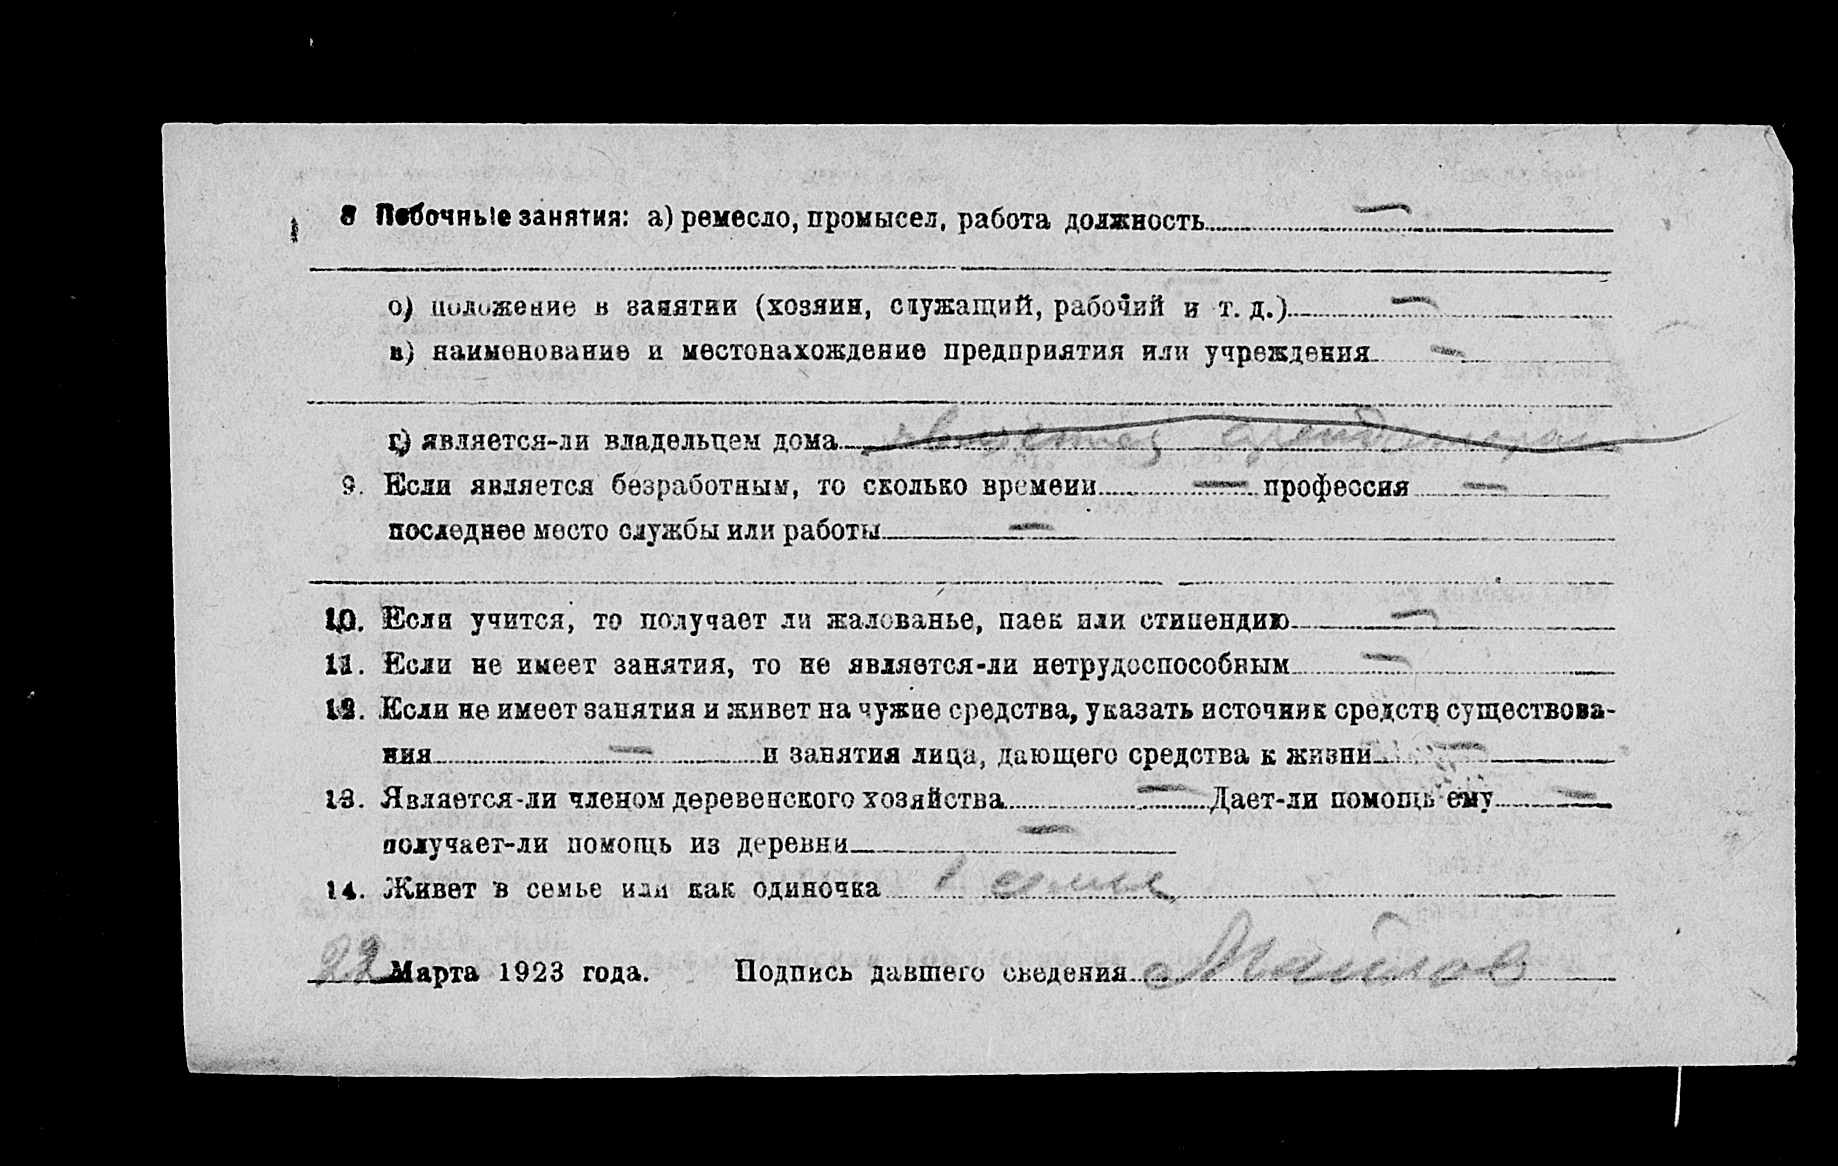 8 Побочные занятия: а) ремесло, промысел, работа должность —
о) положение в занятии (хозяин, служащий, рабочий и т. д.) —
в) наименование и местонахождение предприятия или учреждения —
г) является-ли владельцем дома является арендатором
9. Если является безработным, то сколько времени — профессия —
последнее место службы или работы —
10. Если учится, то получает ли жалованье, паек или стипендию —
11. Если не имеет занятия, то не является-ли нетрудоспособным —
12. Если не имеет занятия и живет на чужие средства, указать источник средств существова-
ния — и занятия лица, дающего средства к жизни —
13. Является-ли членом деревенского хозяйства — Дает-ли помощь ему —
получает-ли помощь из деревни —
14. Живет в семье или как одиночка в семье
22 Марта 1923 года. Подпись давшего сведения